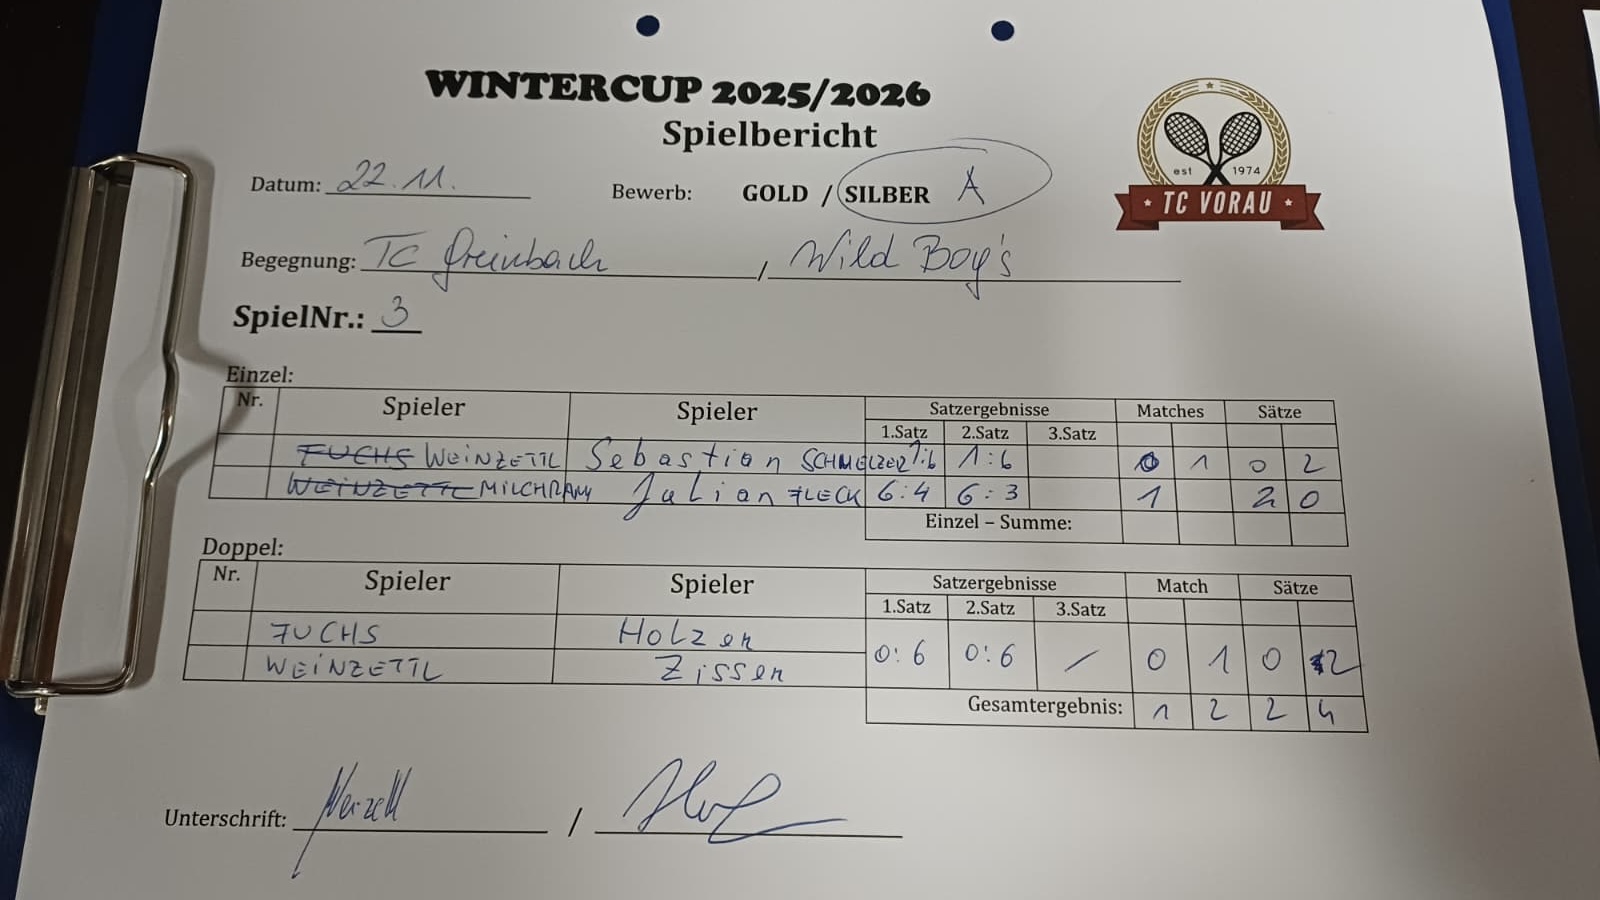 WINTERCUP 2025/2026
Spielbericht
est 1974
TC VORAU
Datum: 22.11. Bewerb: GOLD / SILBER A
Begegnung: TC Greinbach / Wild Boy's
SpielNr.: 3
Einzel:
Nr. Spieler Spieler Satzergebnisse Matches Sätze
1.Satz 2.Satz 3.Satz
FUCHS WEINZETTL Sebastian SCHMELZER 1:6 1:6 0 1 0 2
WEINZETTL MILCHRAM Julian FLECK 6:4 6:3 1 2 0
Einzel – Summe:
Doppel:
Nr. Spieler Spieler Satzergebnisse Match Sätze
1.Satz 2.Satz 3.Satz
FUCHS Holzer
WEINZETTL Zisser
0:6 0:6 / 0 1 0 2
Gesamtergebnis: 1 2 2 4
Unterschrift: /